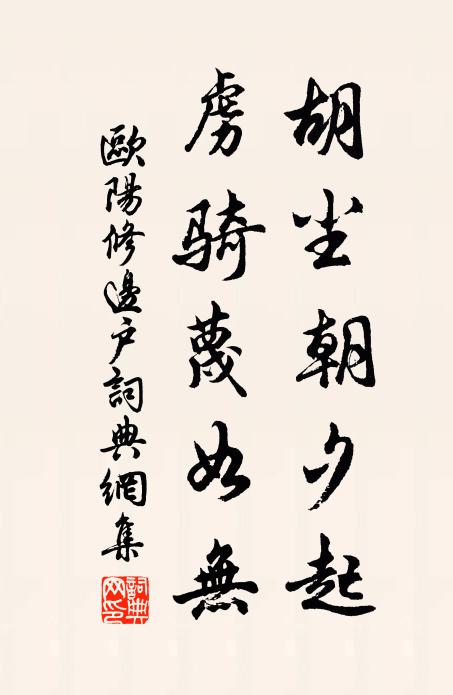 胡尘朝夕起
虏骑蔑如無
歐陽修邊户詞典網集
詞典網印